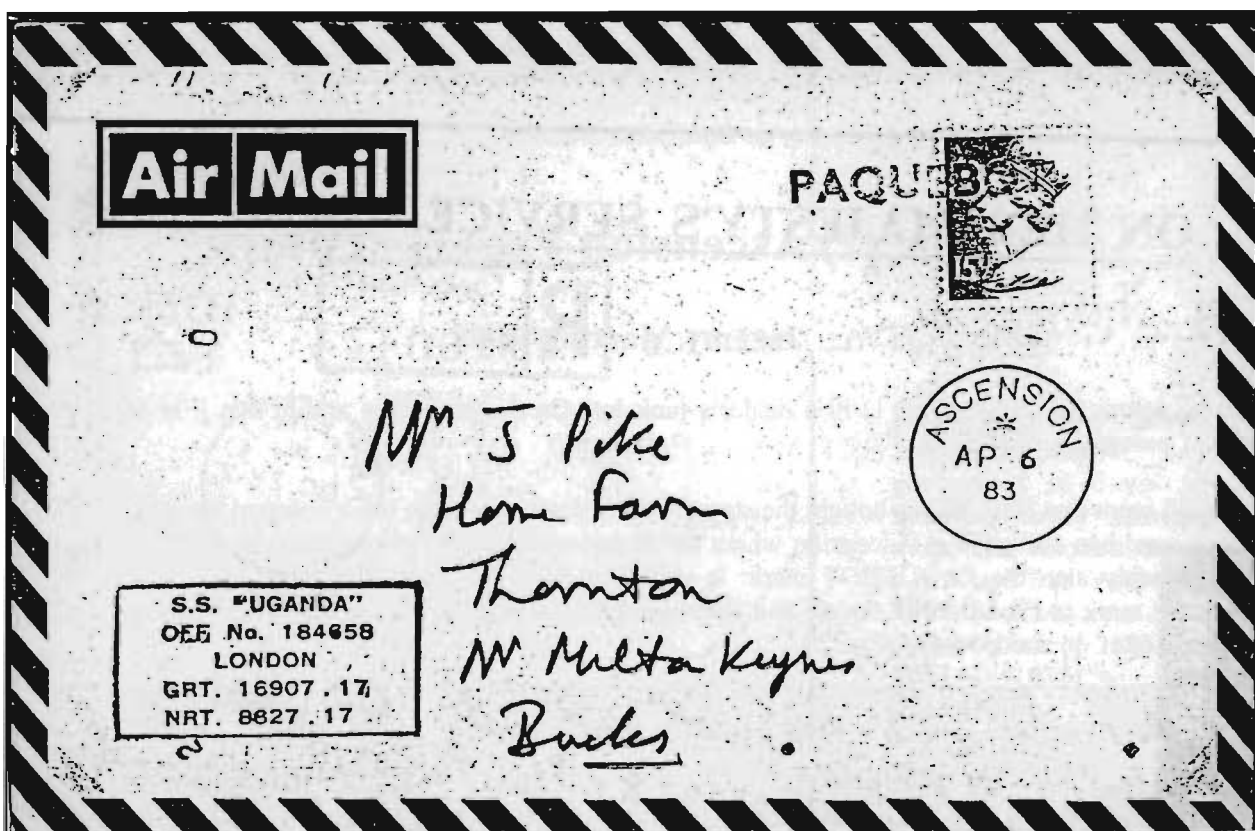 Air Mail
PAQUEBOT
15
ASCENSION
AP 6
83
Mrs J Pike
Home Farm
Thornton
Nr Milton Keynes
Bucks
S.S. "UGANDA"
OFF. No. 184658
LONDON
GRT. 16907.17
NRT. 8627.17